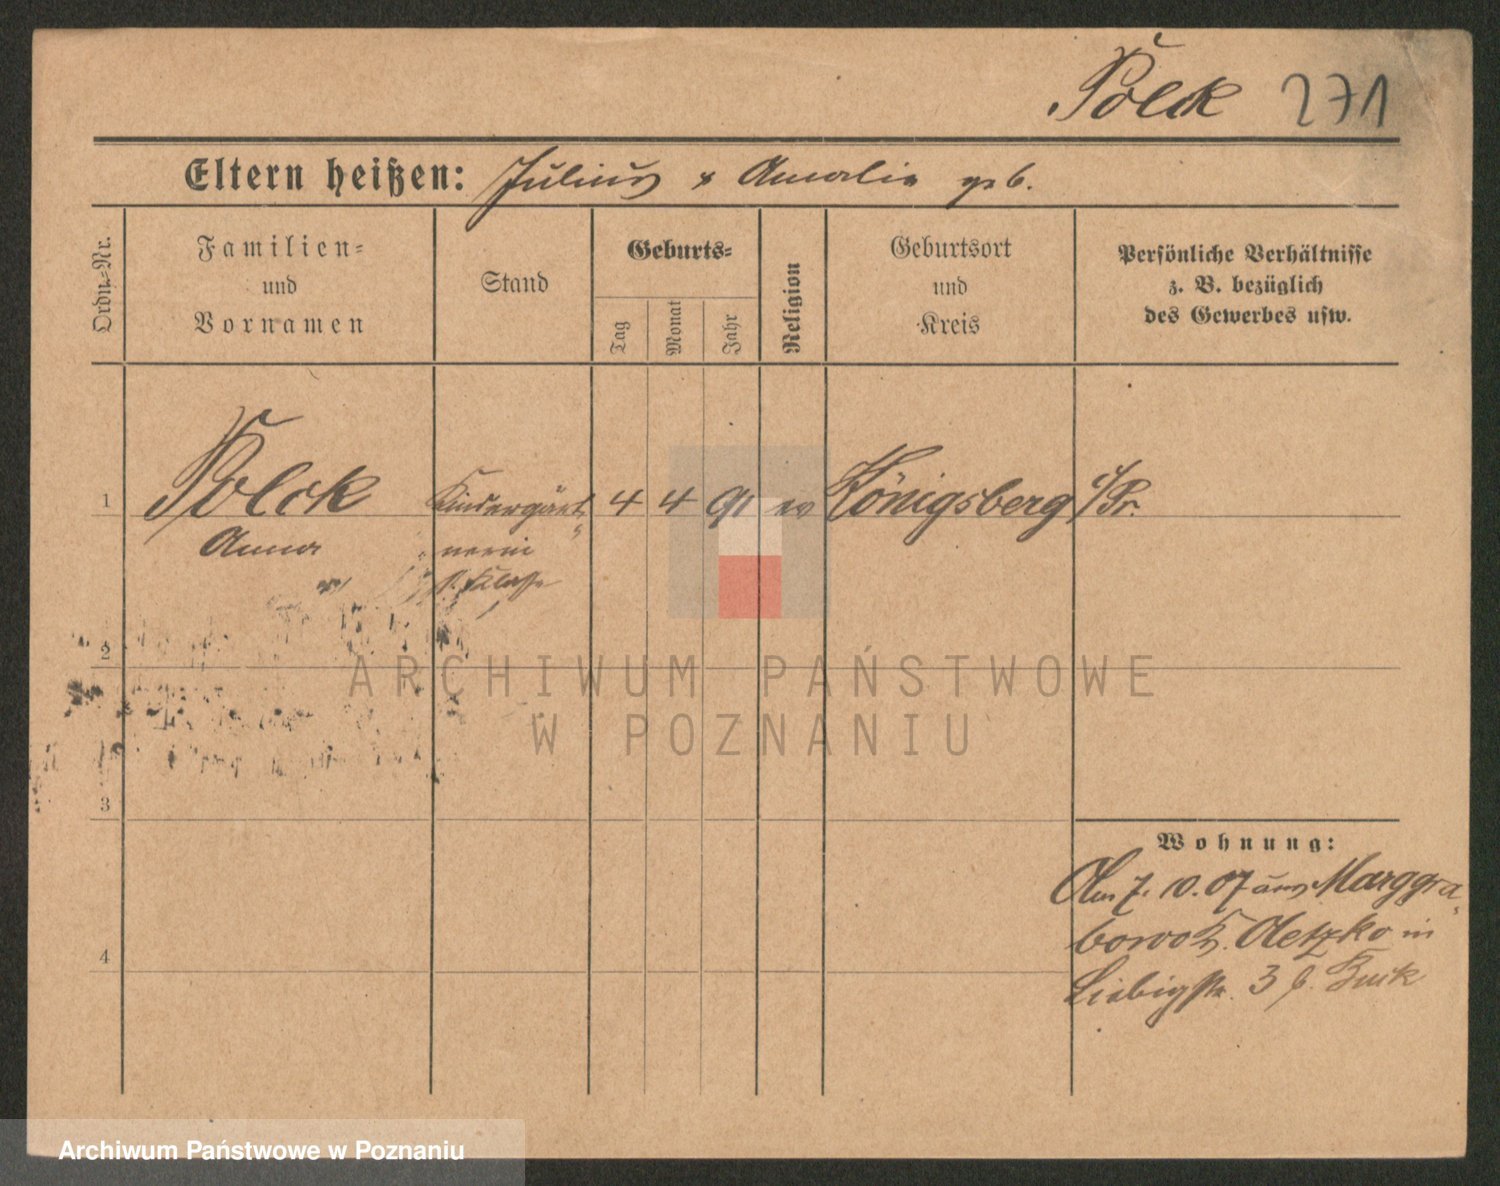 Polck 271
Eltern heißen: Julius & Amalie geb.
Ordn.-Nr.
Familien-
und
Vornamen
Stand
Geburts-
Tag
Monat
Jahr
Religion
Geburtsort
und
Kreis
Persönliche Verhältnisse
z. B. bezüglich
des Gewerbes usw.
1 Polck Kindergärt- 4 4 91 ev Königsberg i/Pr.
Anna nerin
II. Klasse
2
ARCHIWUM PAŃSTWOWE
W POZNANIU
3
Wohnung:
Am 7. 10. 07 aus Marggra-
bowo Kr. Oletzko in
4
Liebigstr. 3 b.
Archiwum Państwowe w Poznaniu